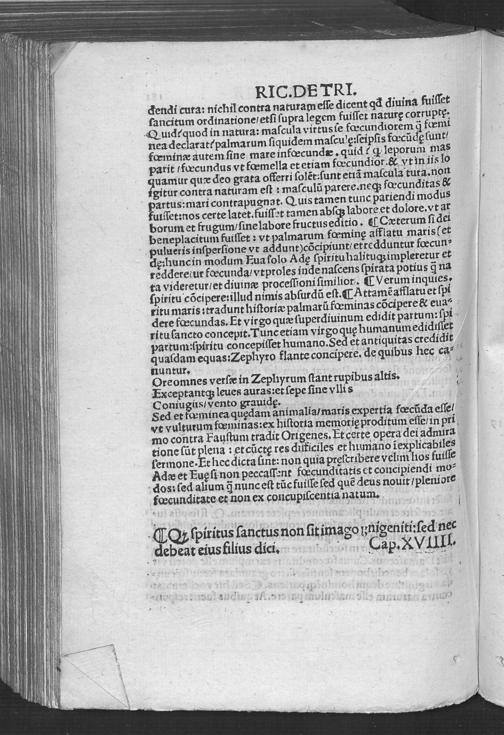 RIC. DE TRI.
dendi cura: nichil contra naturam esse dicent qđ diuina fuisset
sancitum ordinatione/etsi supra legem fuisset naturę corruptę.
Quidsquod in natura: mascula virtus se fœcundiorem q̃ fœmi
nea declarat/palmarum siquidem masculę: seipsis fœcundę sunt/
fœminæ autem sine mare infœcundæ. quid/ꝙ leporum mas
parit/fœcundus vt fœmella et etiam fœcundior. & vt in iis lo
quamur quæ deo grata offerri solēt: sunt etiā mascula tura. non
igitur contra naturam est: masculū parere. neqꝫ fœcunditas &
partus: mari contrapugnat. Quis tamen tunc pariendi modus
fuisset: nos certe latet. fuisset tamen absqꝫ labore et dolore. vt ar
borum et frugum/sine labore fructus editio. ¶ Cæterum si dei
beneplacitum fuisset: vt palmarum fœminę afflatu maris (et
pulueris inspersione vt addunt) cōcipiunt/etredduntur fœcun-
dę: hunc in modum Eua solo Adę spiritu halituqꝫ impleretur et
redderetur fœcunda/vt proles inde nascens spirata potius q̃ na
ta videretur/et diuinæ processioni similior. ¶ Verum inquies.
spiritu cōcipere: illud nimis absurdū est. ¶ Attamē afflatu et spi
ritu maris: tradunt historiæ palmarū fœminas cōcipere & eua-
dere fœcundas. Et virgo quæ superdiuinum edidit partum: spi
ritu sancto concepit. Tunc etiam virgo quę humanum edidisset
partum: spiritu concepisset humano. Sed et antiquitas credidit
quasdam equas: Zephyro flante concipere. de quibus hec ca-
nuntur.
Ore omnes versæ in Zephyrum stant rupibus altis.
Exceptantqꝫ leues auras: et sepe sine vllis
Coniugiis/vento grauidę.
Sed et fœminea quędam animalia/maris expertia fœcūda esse/
vt vulturum fœminas: ex historia memorię proditum esse/in pri
mo contra Faustum tradit Origenes. Et certe opera dei admira
tione sūt plena: et cūctę res difficiles et humano iexplicabiles
sermone. Et hec dicta sint: non quia pręscribere velim hos fuisse
Adæ et Euę si non peccassent fœcunditatis et concipiendi mo-
dos: sed alium q̃ nunc est tūc fuisse sed quē deus nouit/pleniore
fœcunditate et non ex concupiscentia natum.
¶ Qꝫ spiritus sanctus non sit imago vnigeniti: sed nec
debeat eius filius dici. Cap. XVIIII.